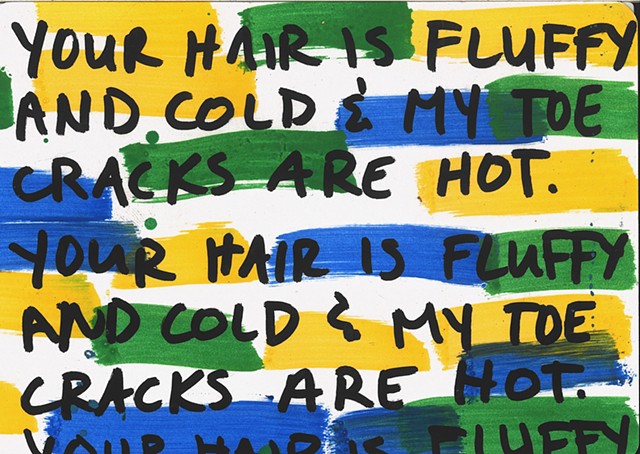 YOUR HAIR IS FLUFFY
AND COLD & MY TOE
CRACKS ARE HOT.
YOUR HAIR IS FLUFFY
AND COLD & MY TOE
CRACKS ARE HOT.
YOUR HAIR IS FLUFFY